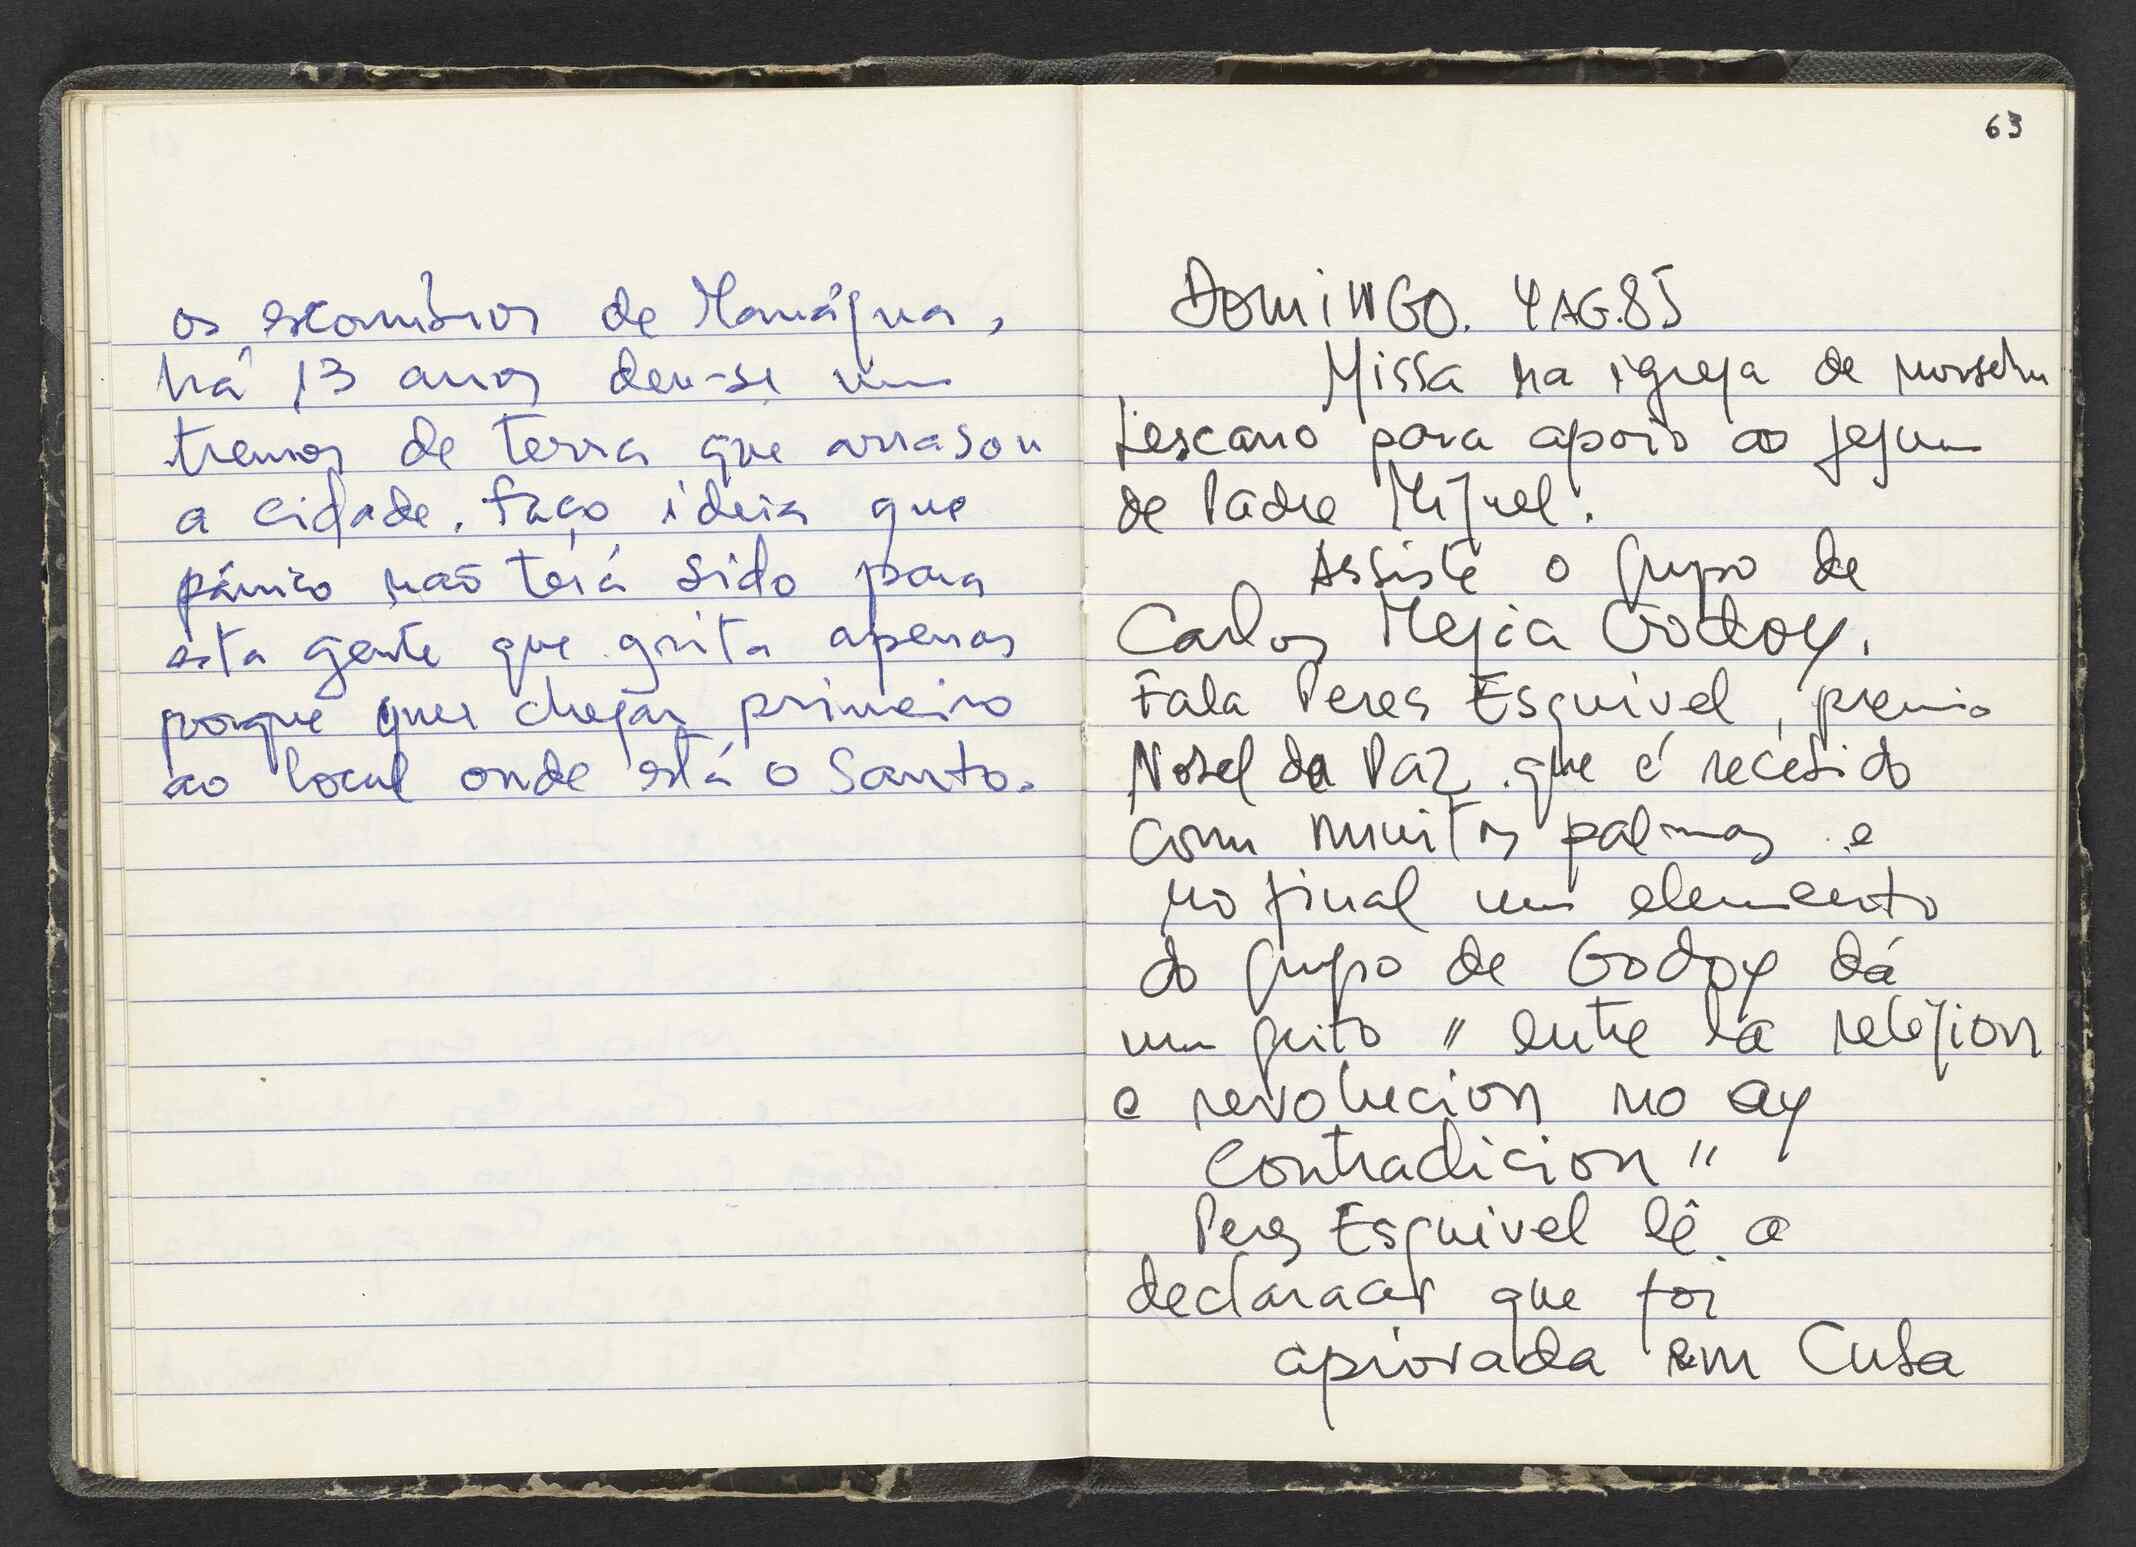 os escombros de Manágua,
há 13 anos deu-se um
tremor de terra que arrasou
a cidade. Faço ideia que
pánico não terá sido para
esta gente que grita apenas
porque quer chegar primeiro
ao local onde está o Santo.
63
DOMINGO. 4 AG.85
Missa na igreja de
Lescano para apoio ao jejum
de Padre Miguel.
Assiste o grupo de
Carlos Mejia Godoy.
Fala Peres Esquivel, premio
Nobel da Paz que é recebido
com muitas palmas e
no final um elemento
do grupo de Godoy dá
um grito " entre la religion
e revolucion no ay
contradicion "
Peres Esquivel lê a
que foi
aprovada em Cuba